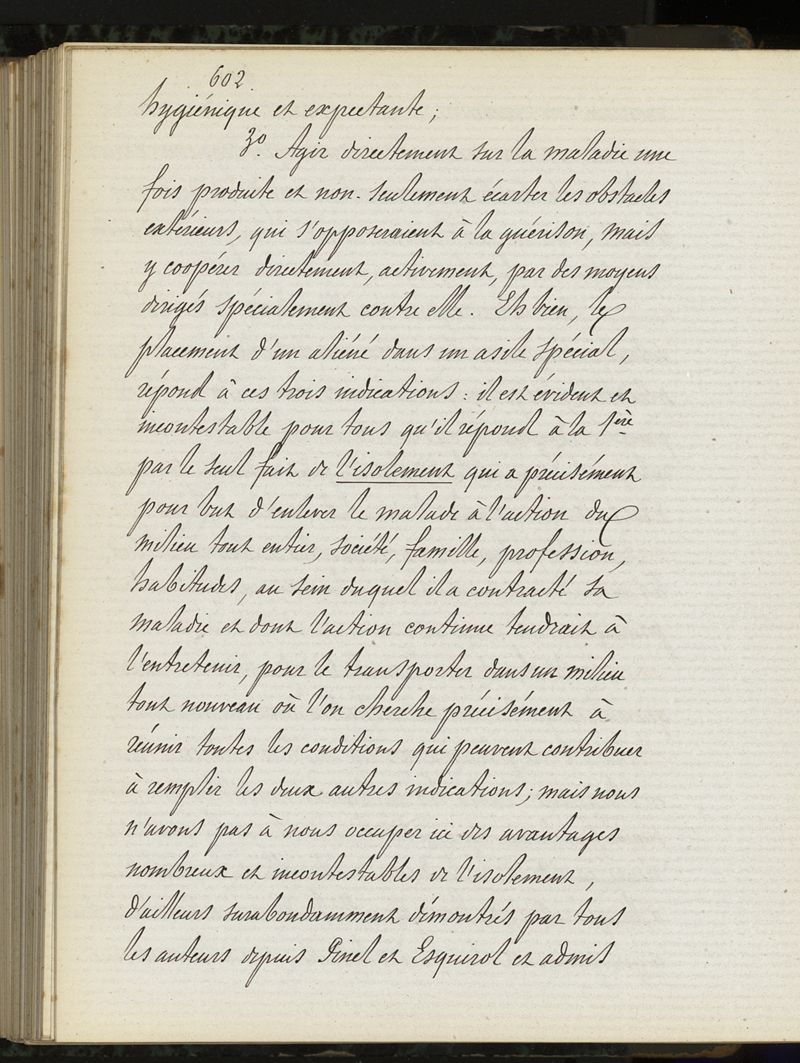 602.
hygiénique et expectante ;
3o. Agir directement sur la maladie une
fois produite et non-seulement écarter les obstacles
extérieurs, qui s'opposeraient à la guérison, mais
y coopérer directement, activement, par des moyens
dirigés spécialement contre elle. Eh bien, le
placement d'un aliéné dans un asile spécial,
répond à ces trois indications : il est évident et
incontestable pour tous qu'il répond à la 1ère
par le seul fait de l'isolement qui a précisément
pour but d'enlever le malade à l'action du
milieu tout entier, société, famille, profession,
habitudes, au sein duquel il a contracté sa
maladie et dont l'action continue tendrait à
l'entretenir, pour le transporter dans un milieu
tout nouveau où l'on cherche précisément à
réunir toutes les conditions qui peuvent contribuer
à remplir les deux autres indications ; mais nous
n'avons pas à nous occuper ici des avantages
nombreux et incontestables de l'isolement,
d'ailleurs surabondamment démontrés par tous
les auteurs depuis Pinel et Esquirol et admis